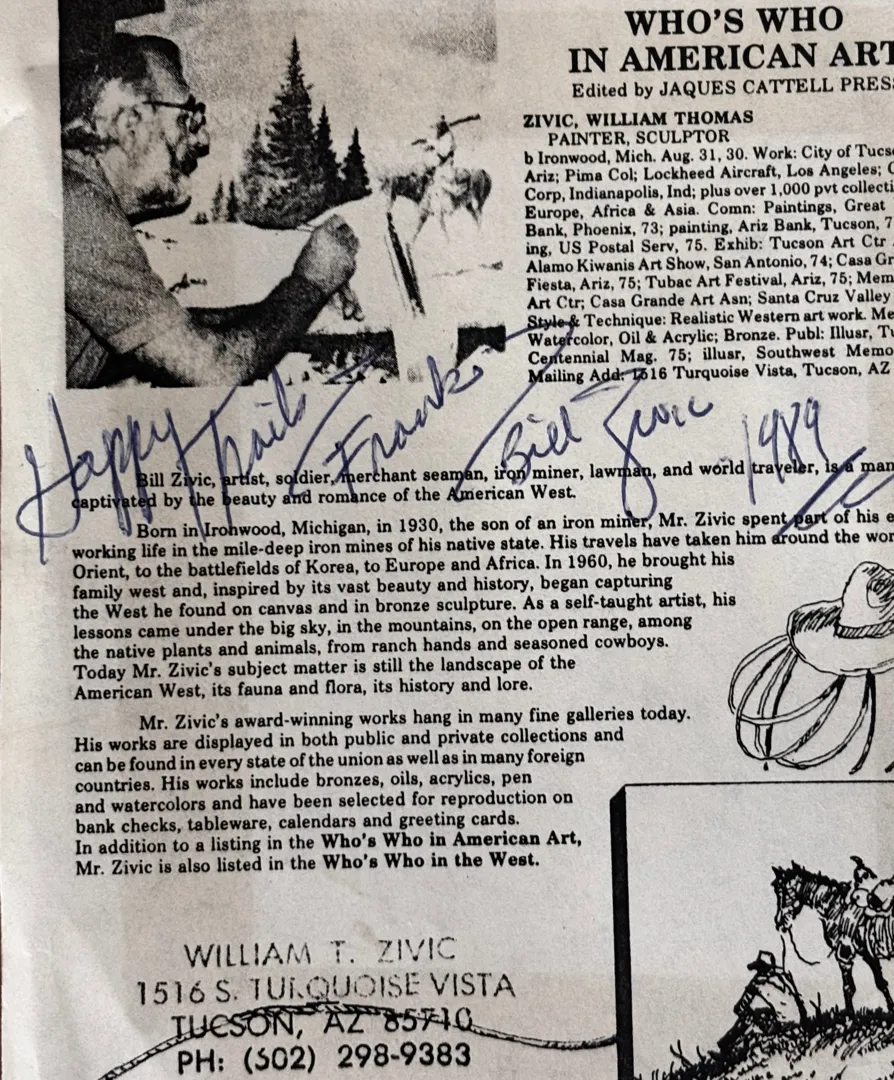 WHO'S WHO
IN AMERICAN ART
Edited by JAQUES CATTELL PRESS
ZIVIC, WILLIAM THOMAS
PAINTER, SCULPTOR
b Ironwood, Mich. Aug. 31, 30. Work: City of Tucs
Ariz; Pima Col; Lockheed Aircraft, Los Angeles;
Corp, Indianapolis, Ind; plus over 1,000 pvt collecti
Europe, Africa & Asia. Comn: Paintings, Great
Bank, Phoenix, 73; painting, Ariz Bank, Tucson, 7
ing, US Postal Serv, 75. Exhib: Tucson Art Ctr
Alamo Kiwanis Art Show, San Antonio, 74; Casa Gr
Fiesta, Ariz, 75; Tubac Art Festival, Ariz, 75; Mem
Art Ctr; Casa Grande Art Asn; Santa Cruz Valley
Style & Technique: Realistic Western art work. Me
Watercolor, Oil & Acrylic; Bronze. Publ: Illusr, Tu
Centennial Mag. 75; illusr, Southwest Memo
Mailing Add: 1516 Turquoise Vista, Tucson, AZ
Happy Trails Frank Bill Zivic 1989
Bill Zivic, artist, soldier, merchant seaman, iron miner, lawman, and world traveler, is a man
captivated by the beauty and romance of the American West.
Born in Ironwood, Michigan, in 1930, the son of an iron miner, Mr. Zivic spent part of his e
working life in the mile-deep iron mines of his native state. His travels have taken him around the wor
Orient, to the battlefields of Korea, to Europe and Africa. In 1960, he brought his
family west and, inspired by its vast beauty and history, began capturing
the West he found on canvas and in bronze sculpture. As a self-taught artist, his
lessons came under the big sky, in the mountains, on the open range, among
the native plants and animals, from ranch hands and seasoned cowboys.
Today Mr. Zivic's subject matter is still the landscape of the
American West, its fauna and flora, its history and lore.
Mr. Zivic's award-winning works hang in many fine galleries today.
His works are displayed in both public and private collections and
can be found in every state of the union as well as in many foreign
countries. His works include bronzes, oils, acrylics, pen
and watercolors and have been selected for reproduction on
bank checks, tableware, calendars and greeting cards.
In addition to a listing in the Who's Who in American Art,
Mr. Zivic is also listed in the Who's Who in the West.
WILLIAM T. ZIVIC
1516 S. TURQUOISE VISTA
TUCSON, AZ 85710
PH: (602) 298-9383